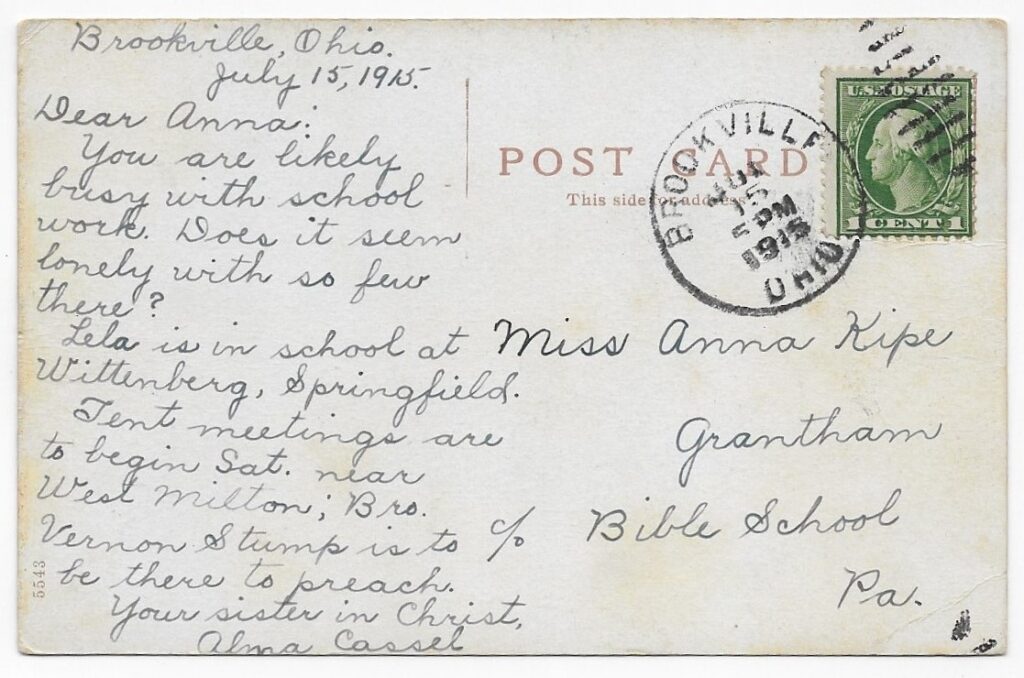 Brookville, Ohio.
July 15, 1915.
Dear Anna:
You are likely
busy with school
work. Does it seem
lonely with so few
there?
Lela is in school at
Wittenberg, Springfield.
Tent meetings are
to begin Sat. near
West Milton; Bro.
Vernon Stump is to
be there to preach.
Your sister in Christ,
Alma Cassel
5543
POST CARD
This side for address
BROOKVILLE
15
PM
1915
OHIO
U.S. POSTAGE
1 CENT 1
Miss Anna Kipe
Grantham
c/o Bible School
Pa.